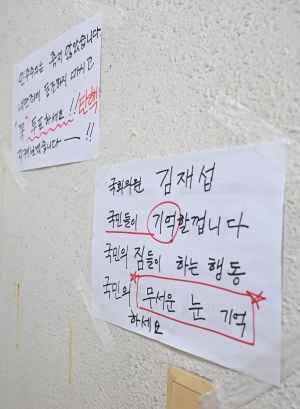 민주주의는 죽지 않았습니다
내란에 동조하지 마시고
"꼭" 투표하세요!! 탄핵
지켜보겠습니다 ―!!
국회의원 김재섭
국민들이 기억할겁니다
국민의 짐들이 하는 행동
국민의 무서운 눈 기억
하세요